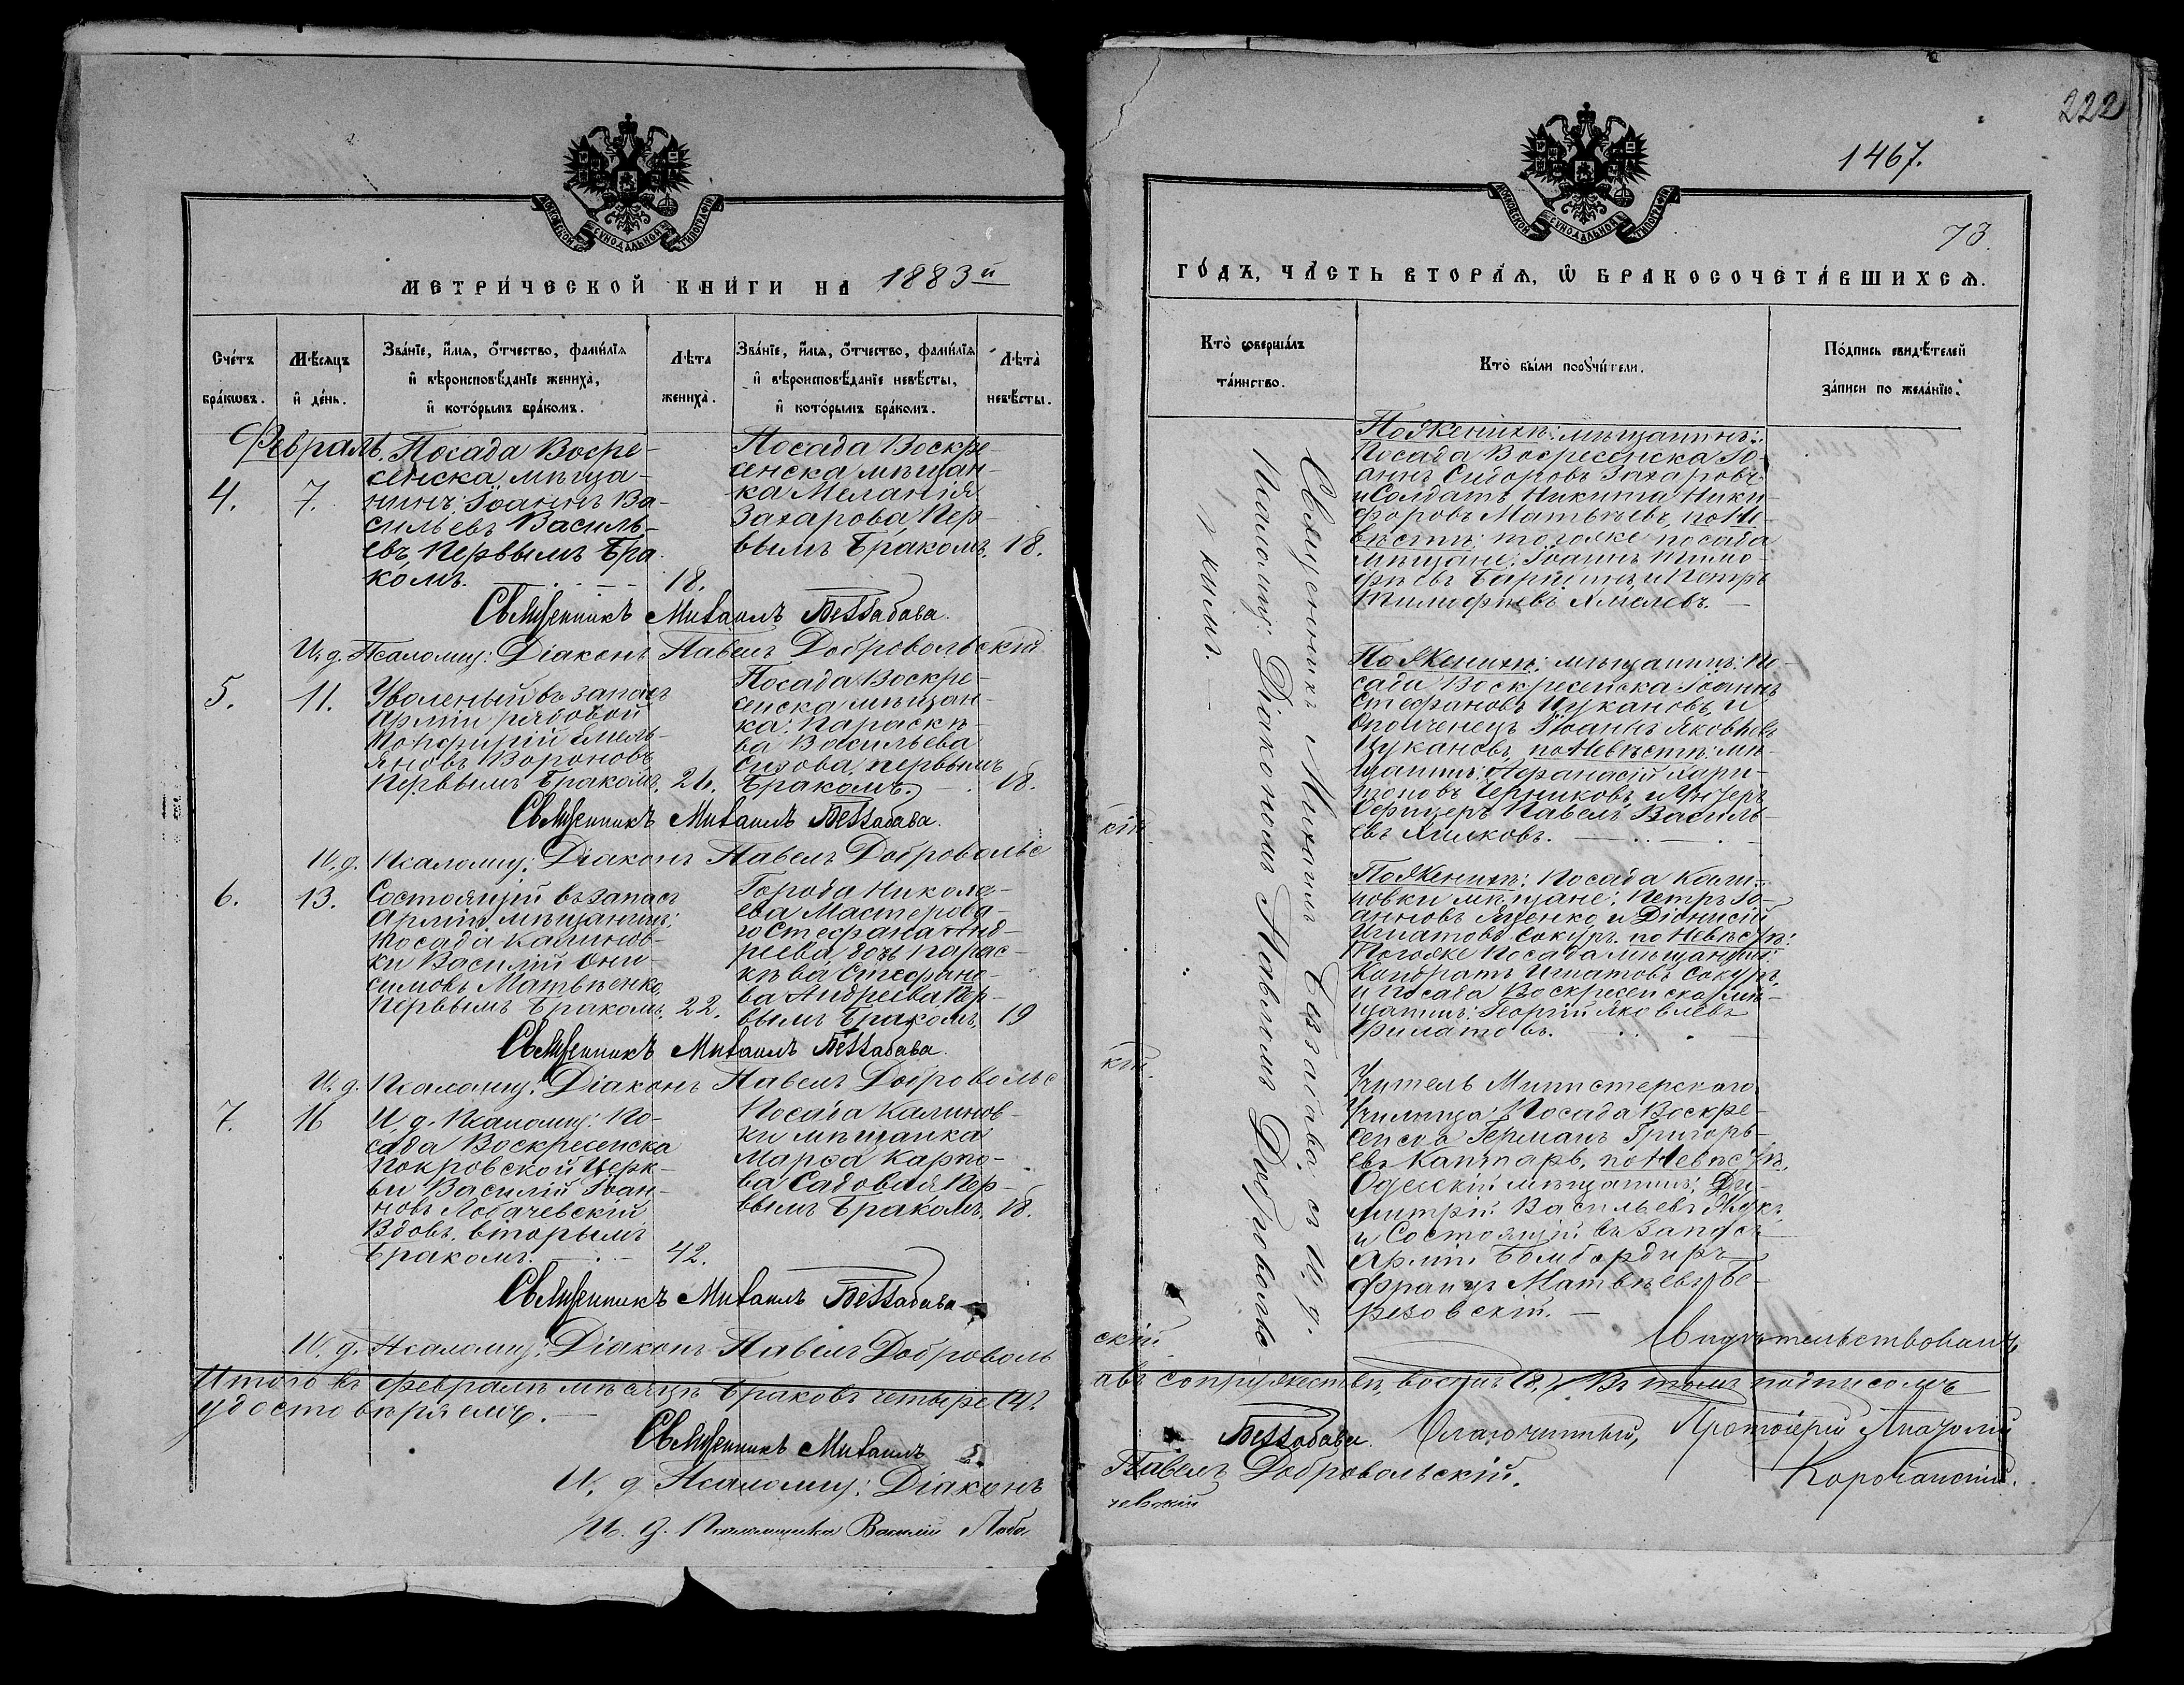 МОСКОВСКОЙ СѴНОДАЛЬНОЙ ТИПОГРАФІИ
МЕТРИ́ЧЕСКОЙ КНИ́ГИ НА 1883й
Сче́тъ бра́кѡвъ.
Мѣ́сяцъ и҆ де́нь.
Зва́нїе, и҆́мѧ, о҆́тчество, фами́лїѧ
и҆ вѣроисповѣ́данїе жениха̀,
и҆ кото́рымъ бра́комъ.
Лѣ́та жениха̀.
Зва́нїе, и҆́мѧ, о҆́тчество, фами́лїѧ
и҆ вѣроисповѣ́данїе невѣ́сты,
и҆ кото́рымъ бра́комъ.
Лѣ́та невѣ́сты.
Февраль.
4.
7.
Посада Воскре-
сенска мѣща-
нинъ: Іоаннъ Ва-
сильевъ Василь-
евъ, Первымъ Бра-
комъ.
18.
Посада Воскре-
сенска мѣщан-
ка Меланія
Захарова, Пер-
вымъ Бракомъ.
18.
Священникъ Михаилъ Беззабава.
И. д. Псаломщ: Діаконъ Павелъ Добровольскій
5.
11.
Уволеный въ запасъ
Арміи рядовой
Порфирій Емель-
яновъ Вороновъ
Первымъ Бракомъ.
26.
Посада Воскре-
сенска мѣщан-
ка: Параскѣ-
ва Васильева
Сизова, первымъ
Бракомъ.
18.
Священникъ Михаилъ Беззабава.
И. д. Псаломщ: Діаконъ Павелъ Добровольс
6.
13.
Состоящій въ запасѣ
Арміи мѣщанинъ:
Посада Калинов-
ки Василій Они-
симовъ Матвѣенко
Первымъ Бракомъ.
22.
Города Никола-
ева Мастерова-
го Стефана Анд-
реева, дочь Парас-
кѣва Стефано-
ва Андреева Пер-
вымъ Бракомъ.
19
Священникъ Михаилъ Беззабава.
И. д. Псаломщ: Діаконъ Павелъ Добровольс
7.
16
И. д. Псаломщ: По-
сада Воскресенска
Покровской Церк-
ви Василій Іоан-
новъ Лобачевскій
Вдовъ, вторымъ
Бракомъ.
42.
Посада Калинов-
ки мѣщанка
Марѳа Карпо-
ва Садовая Пер-
вымъ Бракомъ.
18.
Священникъ Михаилъ Беззабава
И. д. Псаломщ: Діаконъ Павелъ Доброволь
Итого въ февралѣ мѣсяцѣ Браковъ четыре (4).
удостовѣряемъ.
Священникъ Михаилъ
И. д Псаломщ: Діаконъ
И. д. Псаломщика Василій Лоба
222
1467.
73.
МОСКОВСКОЙ СѴНОДАЛЬНОЙ ТИПОГРАФІИ
ГО́ДЪ, ЧА́СТЬ ВТОРА́Ѧ, Ѡ҆ БРАКОСОЧЕТА́ВШИХСѦ.
Кто̀ соверша́лъ
та́инство.
Кто̀ бы́ли порꙋчи́тели.
По́дпись свидѣ́телей
за́писи по жела́нїю.
Священникъ Михаилъ Беззабава, съ И. д.
Псаломщ: Діакономъ Павломъ Доброволь-
кимъ.
По Женихѣ: мѣщанинъ:
Посада Воскресенска Іо-
аннъ Сидоровъ Захаровъ
и Солдатъ Никита Ники-
форовъ Матвѣевъ, по Не-
вѣстѣ: тогоже посада
мѣщане: Іоаннъ Тимо-
фѣевъ Баршинъ и Петръ
Тимофѣевъ Хмелевъ.
По Женихѣ: мѣщанинъ: По-
сада Воскресенска Іоаннъ
Стефановъ Цукановъ, и
Ополченецъ Іоаннъ Яковлевъ
Цукановъ, по Невѣстѣ: мѣ-
щанинъ: Афанасій Хари-
тоновъ Черниковъ, и Унтеръ
Офицеръ Павелъ Василь-
евъ Хилковъ.
кій
По Женихѣ: Посада Кали-
новки мѣщане: Петръ Іо-
анновъ Яценко и Діонисій
Игнатовъ Сокуръ, по Невѣстѣ:
Тогоже Посада мѣщанинъ
Кондратъ Игнатовъ Сокуръ,
и Посада Воскресенска мѣ-
щанинъ: Георгій Яковлевъ
Филатовъ.
кій.
Учитель Министерскаго
Училища: Посада Воскре-
сенска Германъ Григорь-
евъ Каптаръ, по Невѣстѣ,
Одесскій мѣщанинъ: Ди-
митрій Васильевъ Жукъ,
и Состоящій въ Запасѣ
Арміи Бомбардиръ
Францъ Матвѣевъ Бе-
резовскій.
скій.
Свидѣтельствовалъ
авъ сопружествѣ, восемь (8.) Въ томъ подписомъ
Беззабава. Благочинный, Протоіерей Анатолій
Павелъ Добровольскій. Корочанскій.
чевскій